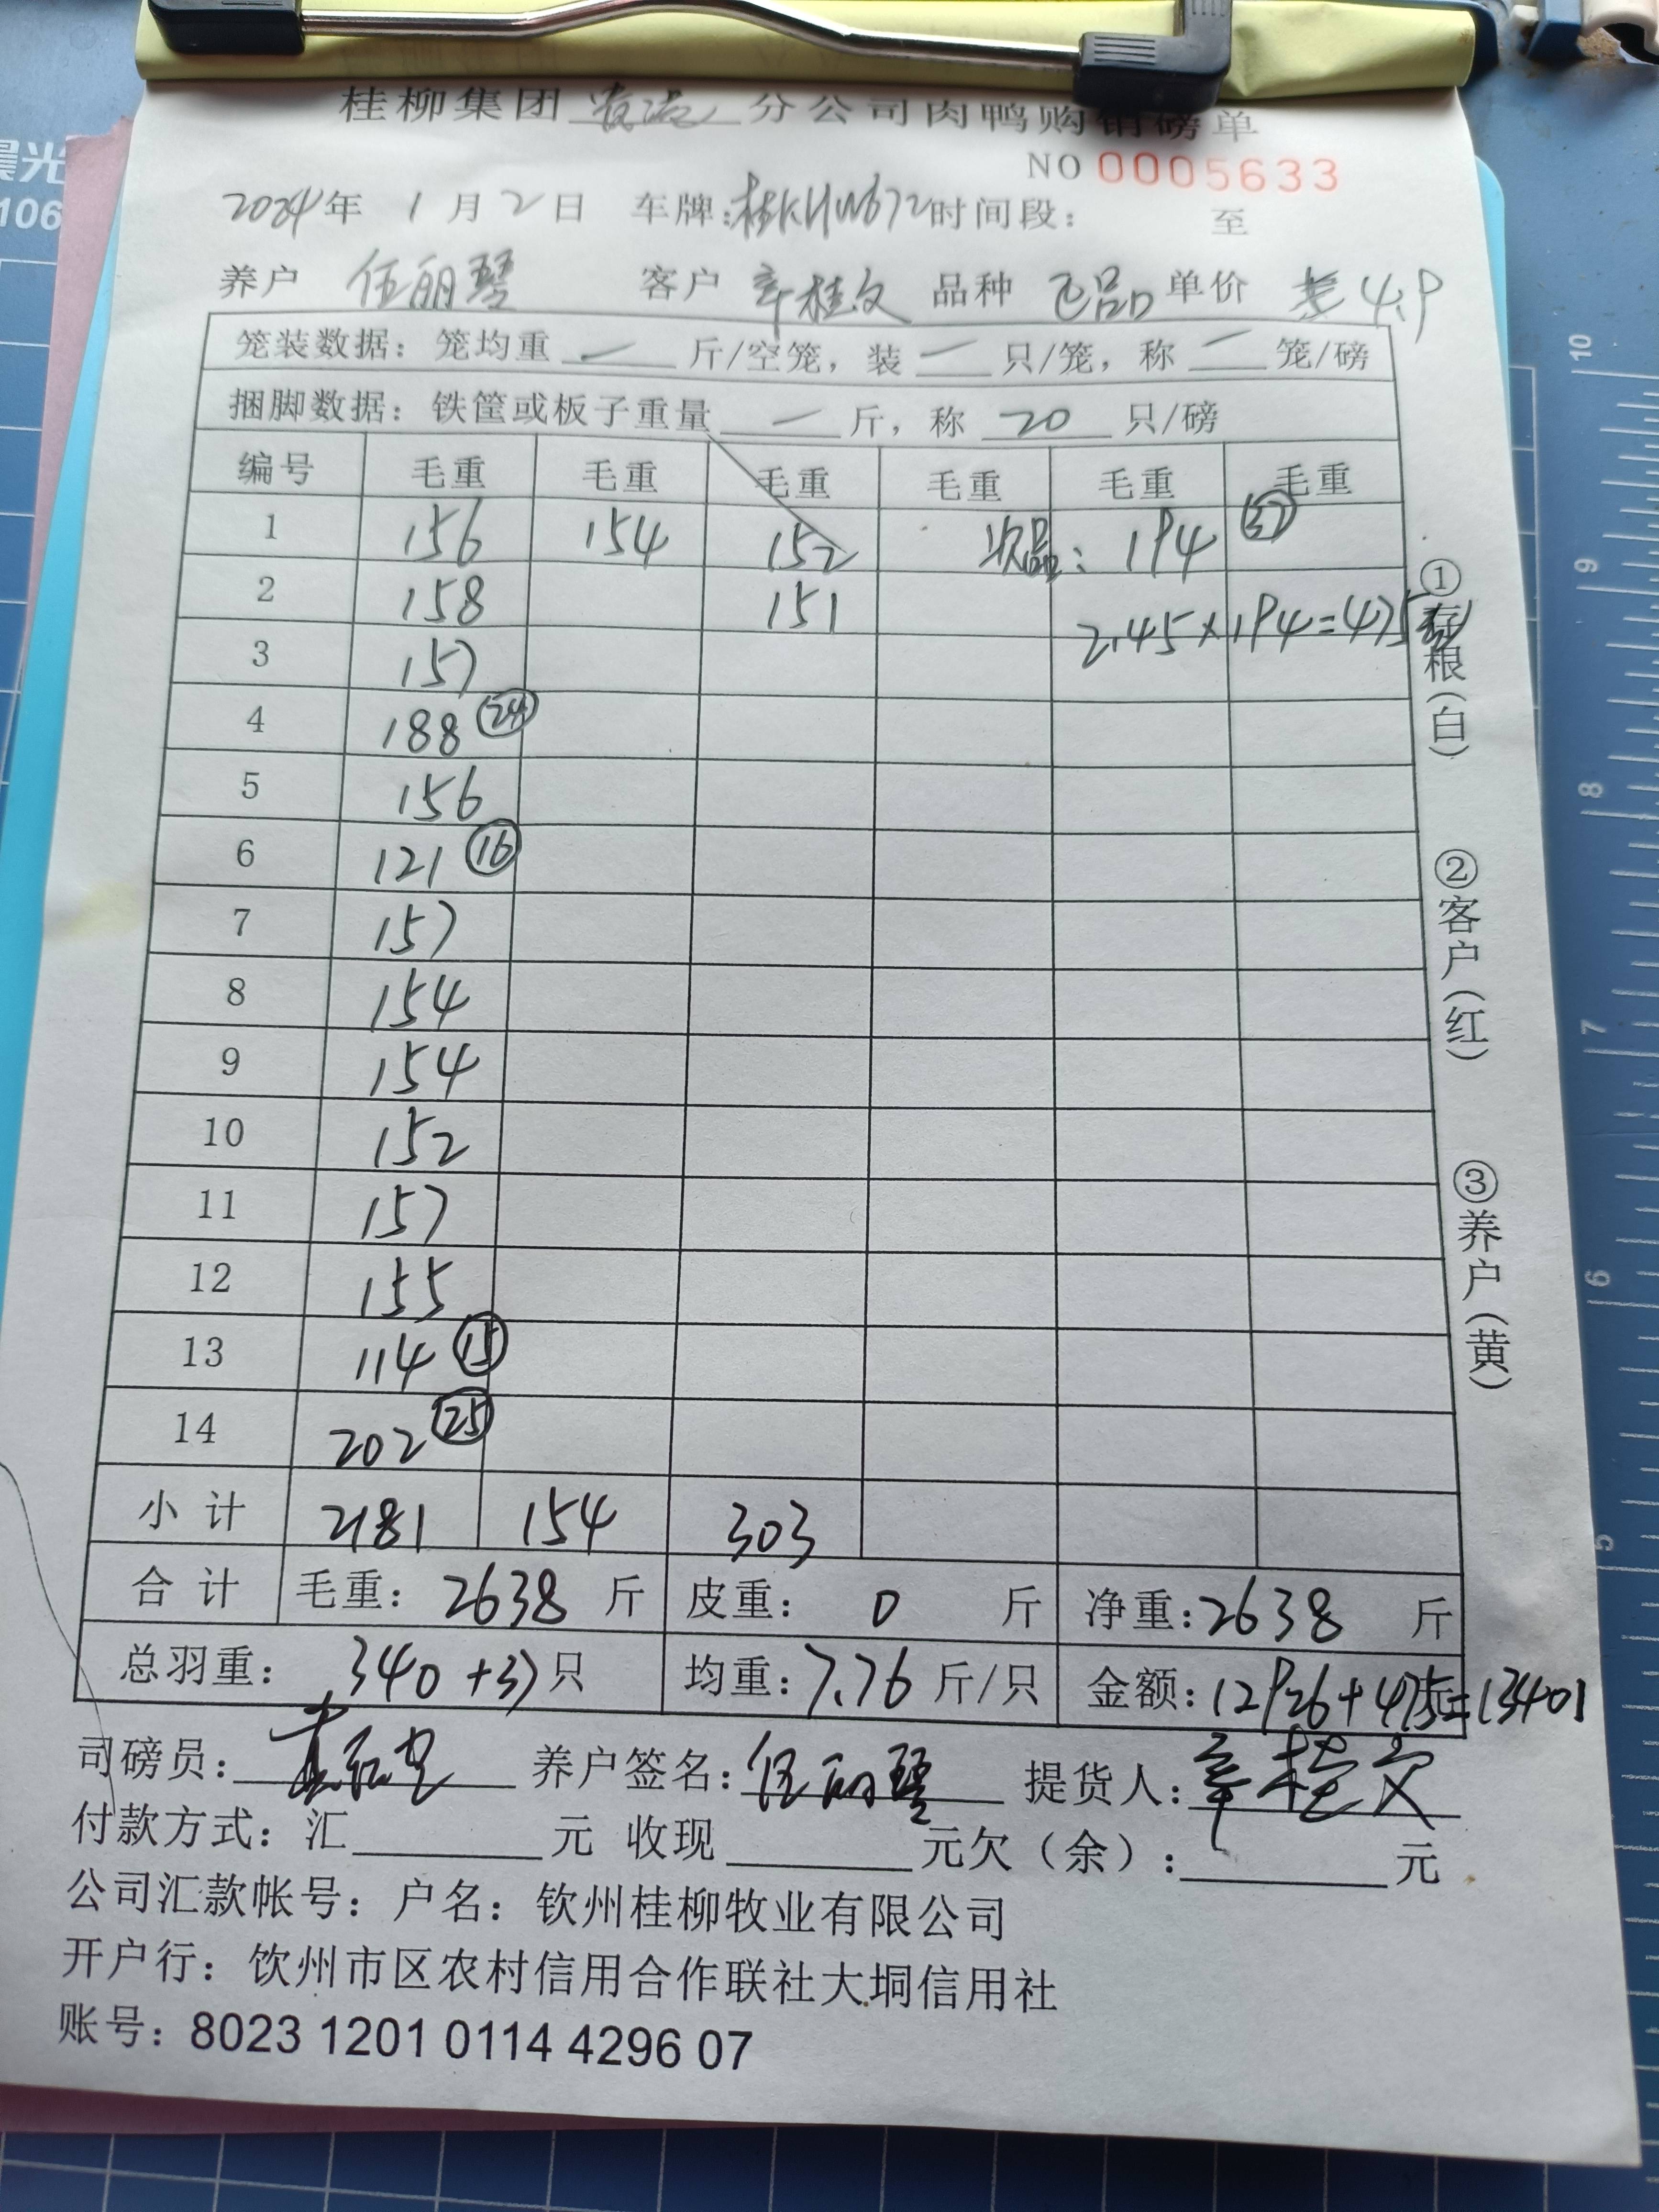 桂柳集团 分公司肉鸭购销磅单
NO 0005633
2024年 1月2日 车牌: 时间段: 至
养户 伍丽琴 客户 辛桂文 品种 正品 单价 4.9
笼装数据: 笼均重 — 斤/空笼, 装 — 只/笼, 称 — 笼/磅
捆脚数据: 铁筐或板子重量 — 斤, 称 20 只/磅
编号 毛重 毛重 毛重 毛重 毛重 毛重
1 156 154 152 次品: 194 ㊲
2 158 151 2.45×194=475
3 157
4 188 ㉔
5 156
6 121 ⑯
7 157
8 154
9 154
10 152
11 157
12 155
13 114 ⑮
14 202 ㉕
小计 2181 154 303
合计 毛重: 2638 斤 皮重: 0 斤 净重: 2638 斤
总羽重: 340+37只 均重: 7.76 斤/只 金额: 12926+475=13401
司磅员: 养户签名: 伍丽琴 提货人: 辛桂文
付款方式: 汇 元 收现 元欠(余): 元
公司汇款帐号: 户名: 钦州桂柳牧业有限公司
开户行: 钦州市区农村信用合作联社大垌信用社
账号: 8023 1201 0114 4296 07
①存根(白)
②客户(红)
③养户(黄)
晨光
106
10
9
8
7
6
5